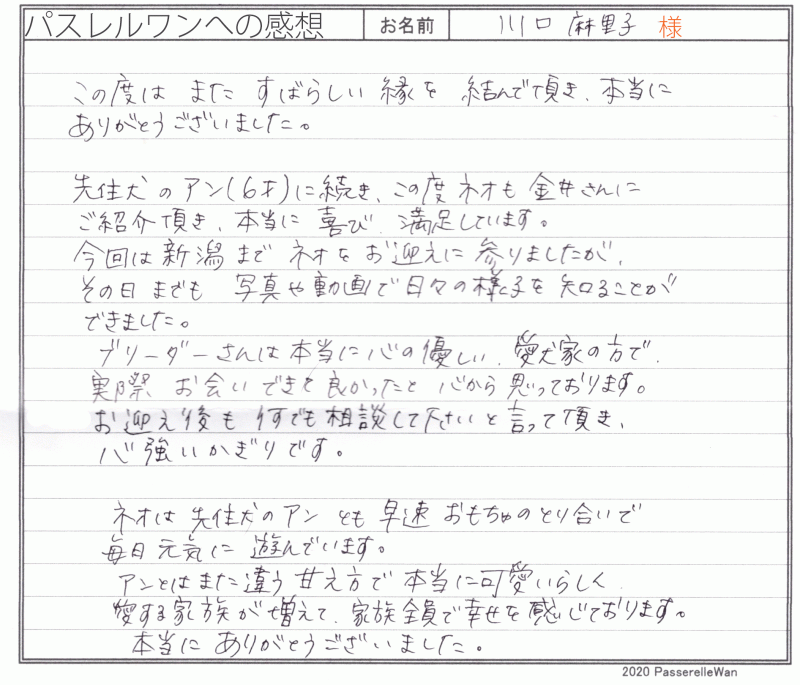 パスレルワンへの感想 お名前 川口 麻里子 様
この度は また すばらしい 縁を 結んで頂き、本当に
ありがとうございました。
先住犬のアン(6才)に続き、この度 ネオも 金井さんに
ご紹介頂き、本当に 喜び、満足しています。
今回は新潟まで ネオを お迎えに 参りましたが、
その日までも 写真や動画で日々の様子を知ることが
できました。
ブリーダーさんは本当に心の優しい、愛犬家の方で、
実際 お会いできて良かったと 心から 思っております。
お迎え後も 何でも相談して下さいと言って頂き、
心強いかぎりです。
ネオは 先住犬のアン とも 早速 おもちゃのとり合いで
毎日元気に 遊んでいます。
アンとはまた違う 甘え方で 本当に可愛いらしく
愛する家族が増えて、家族全員で幸せを感じております。
本当に ありがとうございました。
2020 PasserelleWan